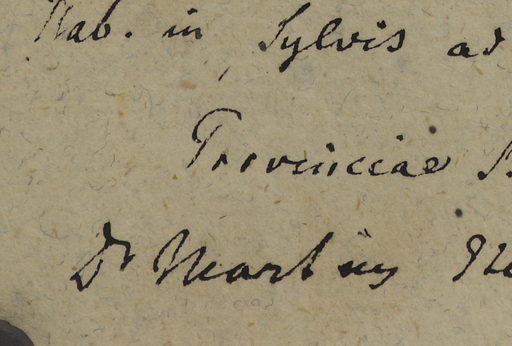 Hab. in Sylvis ad
Provinciae
Dr Martius